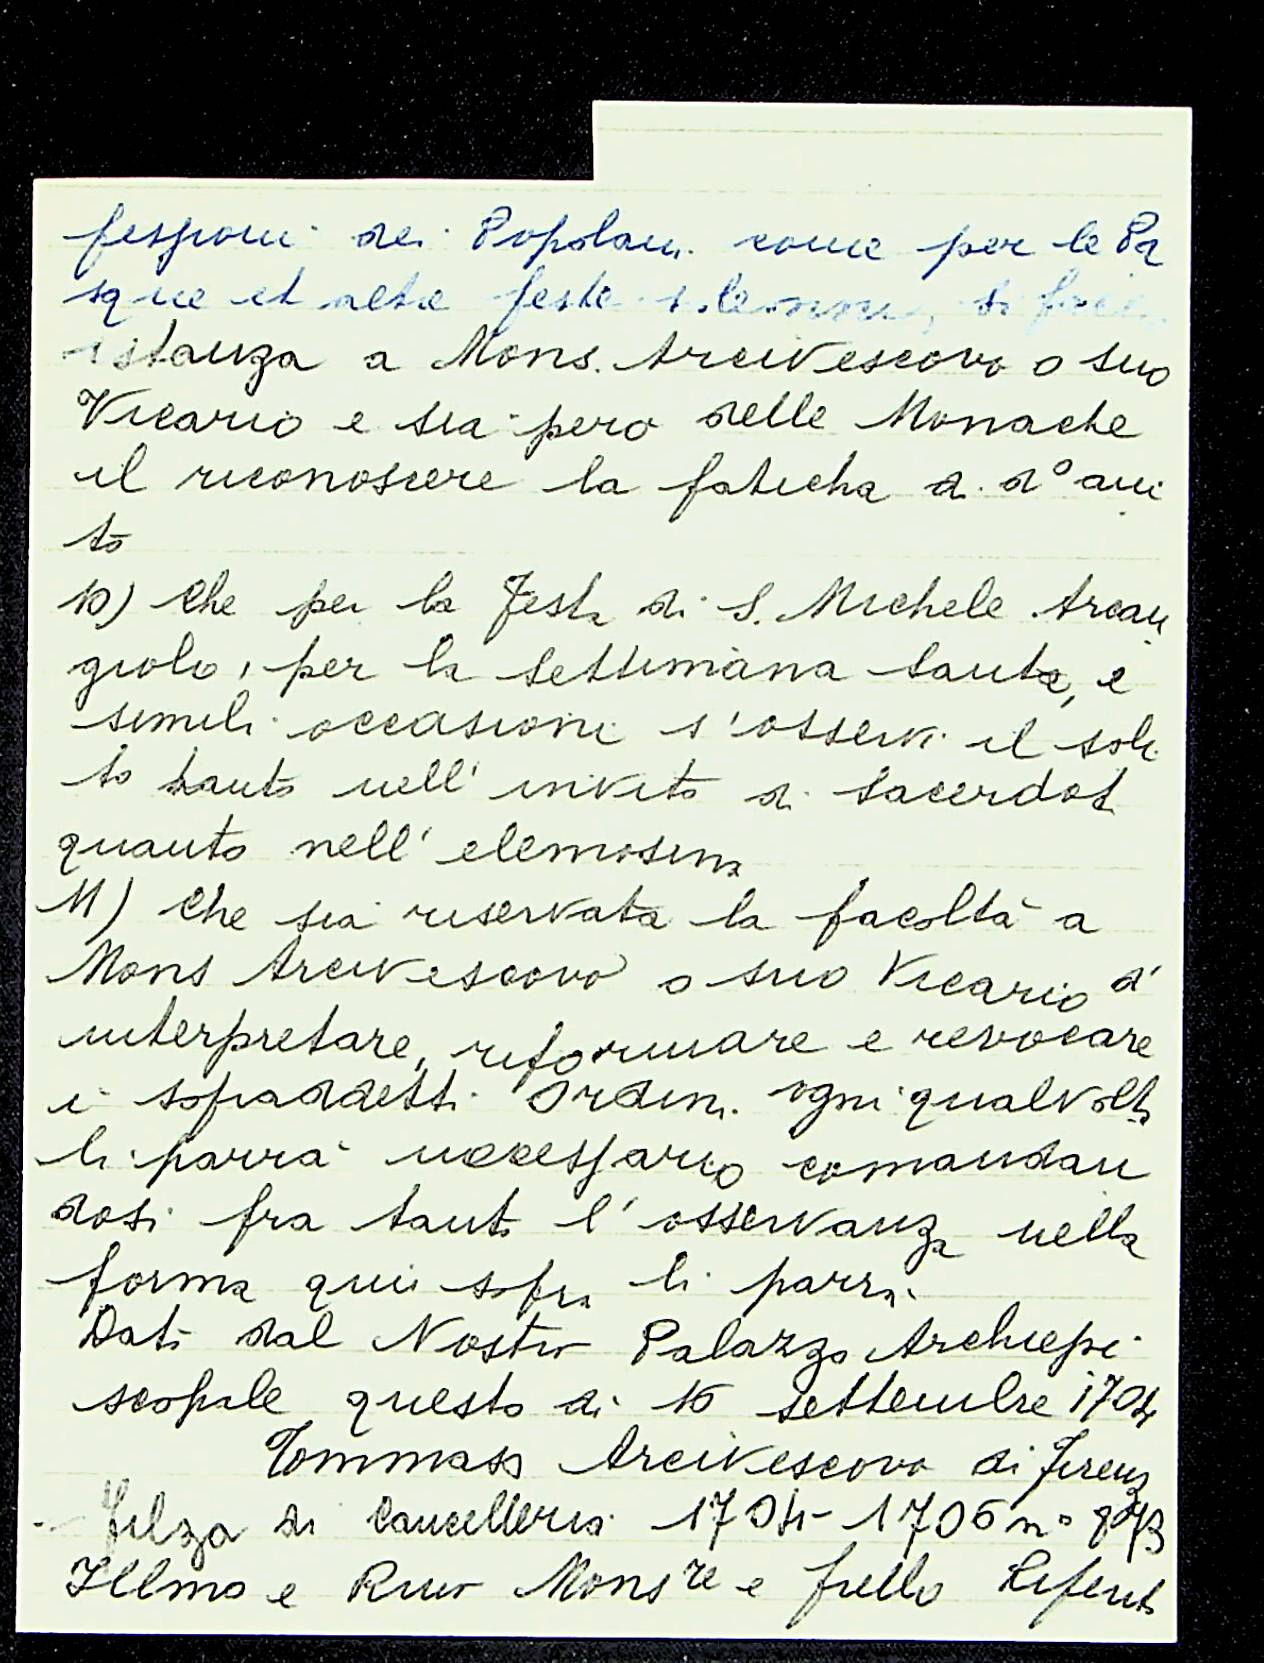 fessioni dei Popolani come per le Pa
sque et altre feste solenni, si facci
istanza a Mons. Arcivescovo o suo
Vicario e sia pero delle Monache
il riconoscere la faticha di d° aiu
to
10) Che per la Festa di S. Michele Arcan
giolo, per la Settimana Santa, e
simili occasioni s'osservi il soli
to tanto nell'invito di Sacerdoti
quanto nell'elemosina
11) Che sia riservata la facoltà a
Mons Arcivescovo o suo Vicario d'
interpretare, riformare e revocare
i sopraddetti Ordini ogni qualvolta
li parrà necessario comandan
dosi fra tanto l'osservanza nella
forma qui sopra li parrà.
Dato dal Nostro Palazzo Archiepi
scopale questo di 10 settembre 1704
Tommaso Arcivescovo di Firenz
Filza di Cancelleria 1704-1706 n°
Illmo e Rmo Mons re e frello